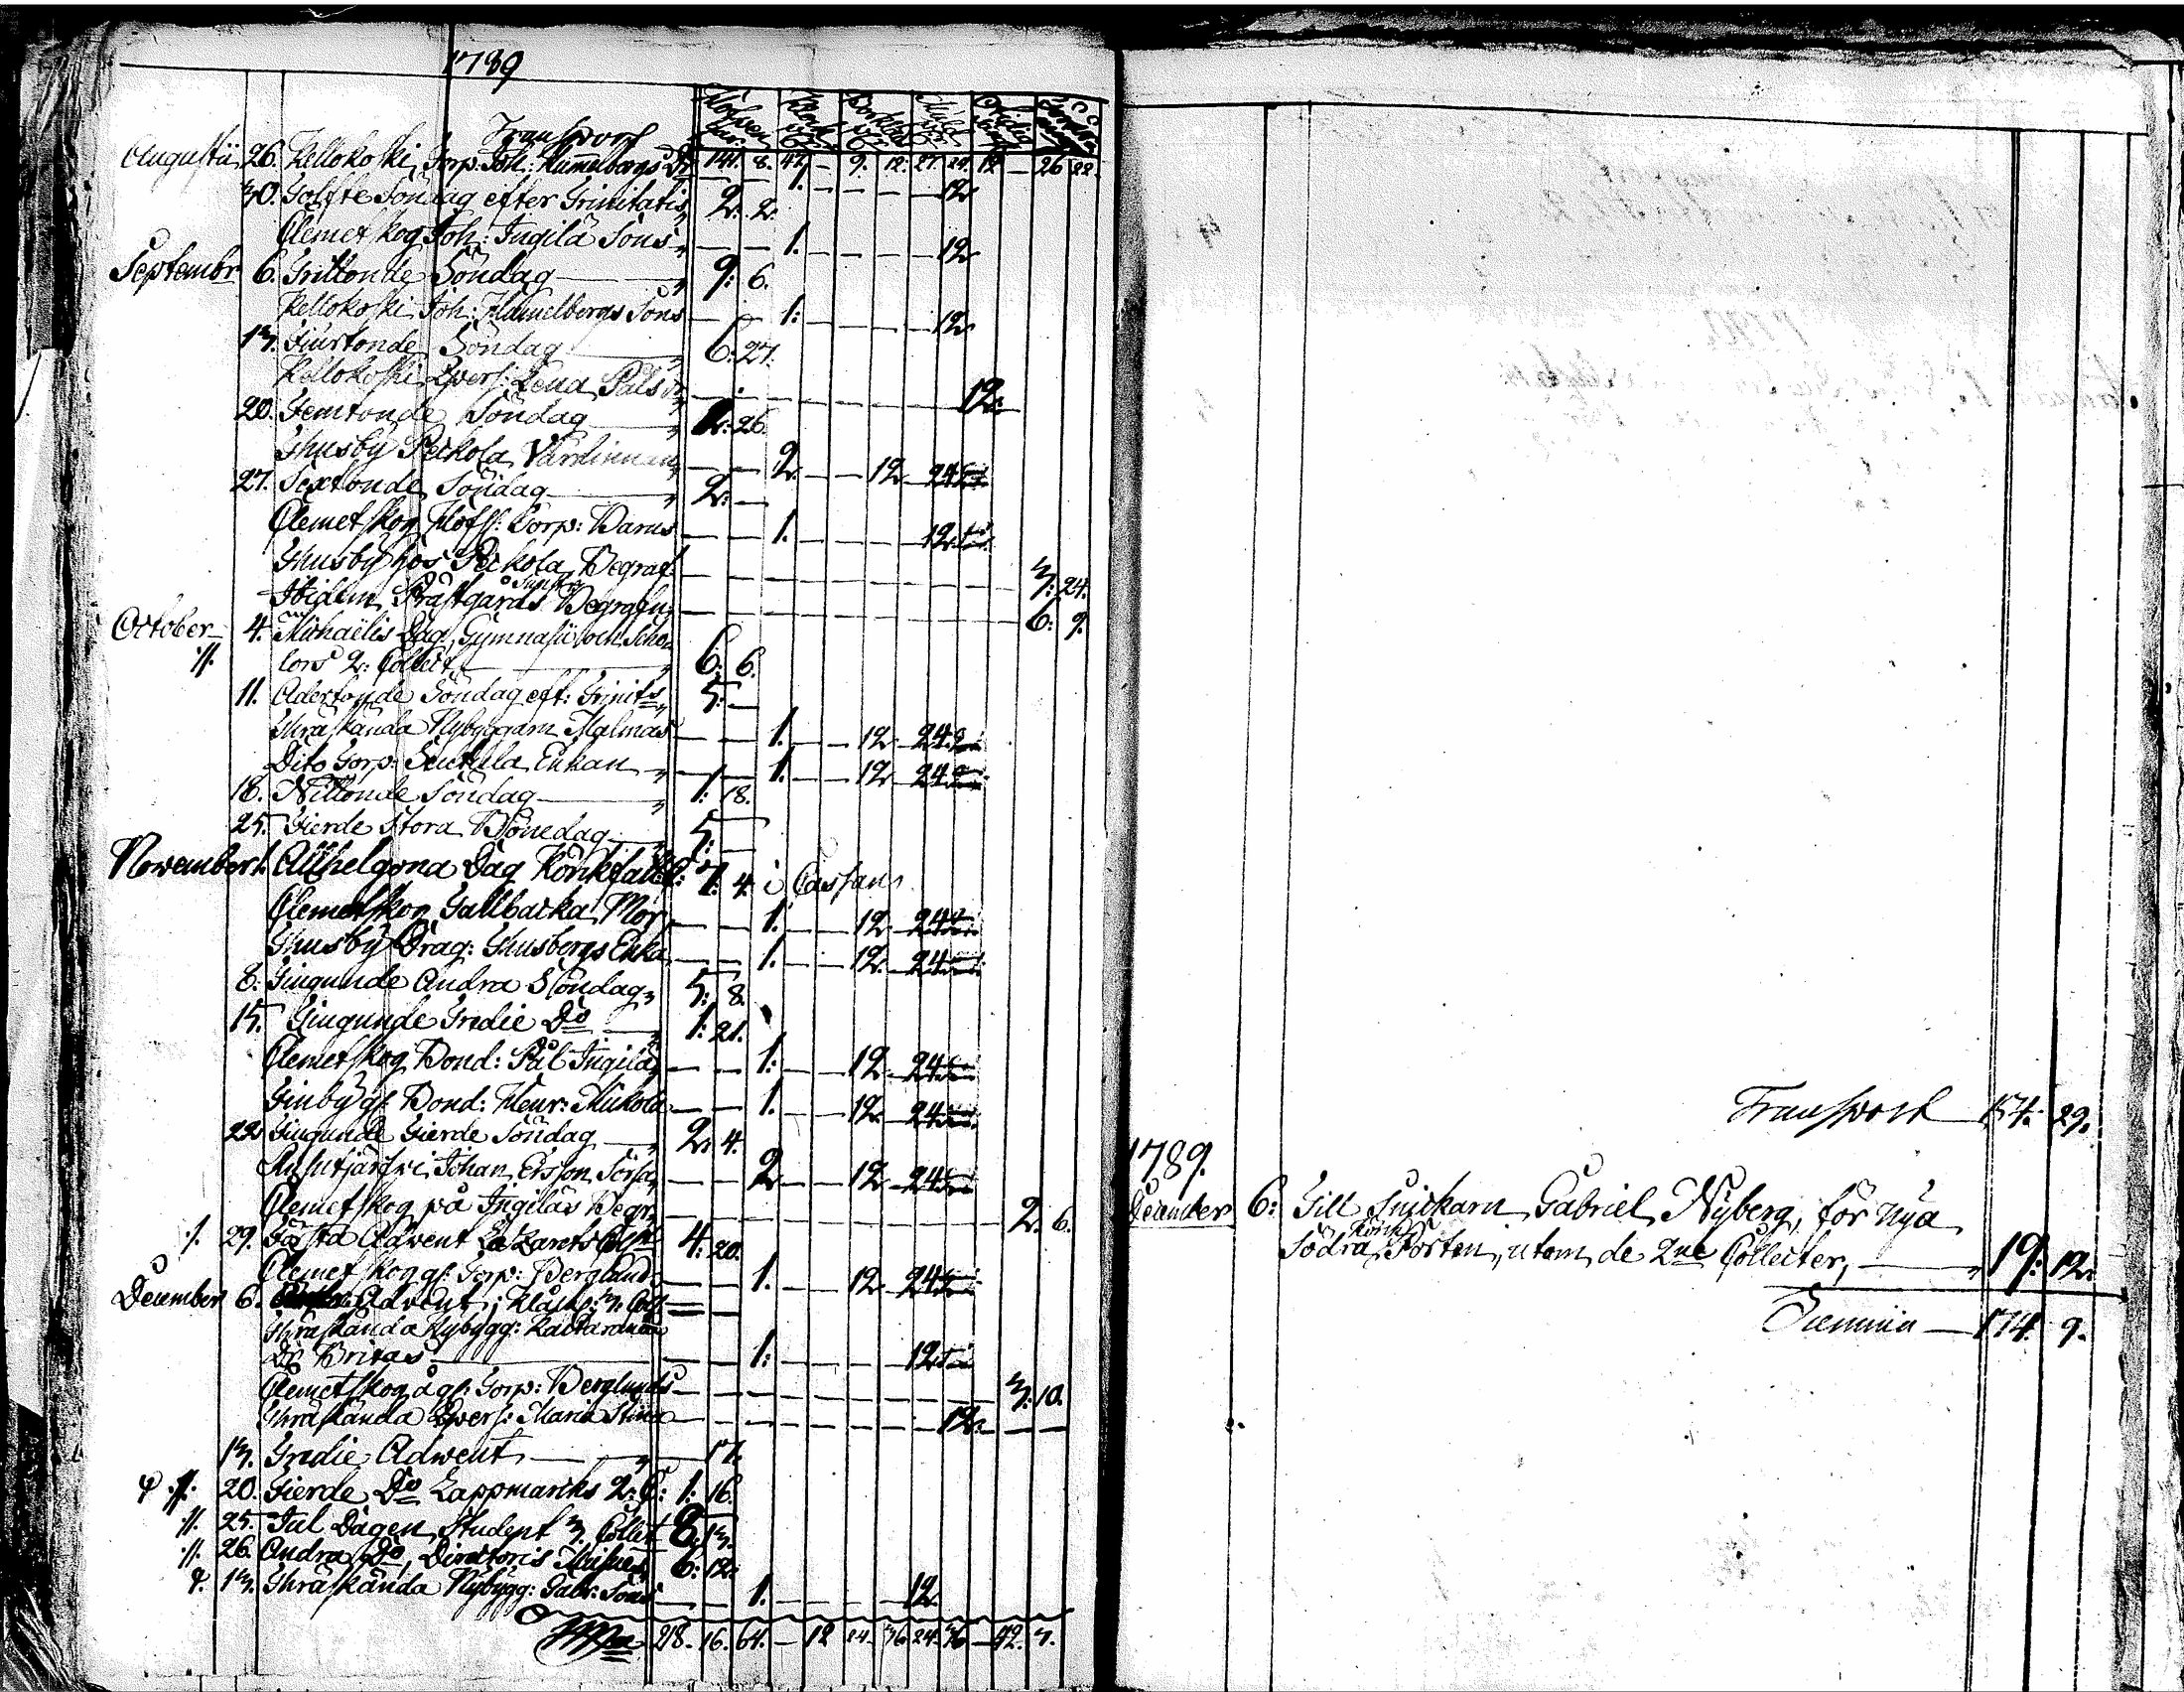 1789
Transport
Augustii 26. Kellokoski, Torp: Joh: Hammelbergs Dr 141. 8. 47. — 9. 12. 27. 24. 12 — 26 22.
30. Tolfte Söndag efter Trinitatis 2: 2.
Clemetskog Joh: Ingilä Sons — — 1. — — — — 12
Septembr 6. Trittonde Söndag 9: 6.
Kellokoski Joh: Hamelbergs Sons — — 1: — — — — 12
13. Fiurtonde Söndag 6: 27.
Kellokoski Qvers: Lena Påls dr 12:
20. Femtonde Söndag 2: 26.
Thusby Pekola Värdinnan — — 2. — — 12 — 24
27. Sextonde Söndag 2: —
Clemetskog Torp: — — 1. 12.
Thusby hos Pekola Begraf: 3: 24.
Ibidem Prästgårds Begrafn: 6: 9.
October 4. Michaëlis Dag, Gymnasii och Scho-
lors 2: Collect 6: 6.
11. Adertonde Söndag eft: Trinits 5: —
Thräskända Nybyggarn Malmas — — 1. — — 12 — 24
Dito Torp: Enkan — — 1. — — 12 — 24
18. Nittonde Söndag 1: 18.
25. Fierde Stora Bönedag 5: —
November 1. Allhelgona Dag 7: 4. i Cassan
Clemetskog Gallbacka Mor — — 1. — — 12 24
Thusby Drag: Thusbergs Enka — — 1. — — 12. — 24
8. Tiugunde Andra Söndag 5: 8.
15. Tiugunde Tredie Do 1: 21.
Clemetskog Bond: Pål Ingilä — — 1: — — 12 — 24
Bond: Henr: Mickola — — 1. — — 12 — 24
22 Tiugunde Fierde Söndag 2: 4.
Johan Ersson — — 2 — — 12 — 24
Clemetskog på Ingiläs Begr: 2: 6.
29. Första Advent Lazarets Coll: 4: 20.
Clemetskog gl: Torp: Berglunds — — 1. — — 12 — 24
December 6. Advent, 3: Coll — —
Thräskända Nybygg:
Do Britas — — 1: — — — — 12
Clemetskog å gl: Torp: Berglunds 3: 10.
Thräskända Qvers: Maria Stina 12. — — —
13. Tredie Advent — 17.
20. Fierde Do Lappmarcks 2: C: 1: 16.
25. Jul Dagen, Student 3. Collect 8: 13.
26. Andra Do, Directoris 6: 12.
13. Thräskända Nybygg: Gabr: Sons — — 1. — — — — 12.
218. 16. 64. — 12 24. 36. 24. 36 — 42. 3.
Transport 154. 29.
1789.
December 6: Till Snickarn Gabriel Nyberg, för nya
Södra Kyrk Porten, utom de 2ne Collecter, 19: 12.
Summa — 174. 9.